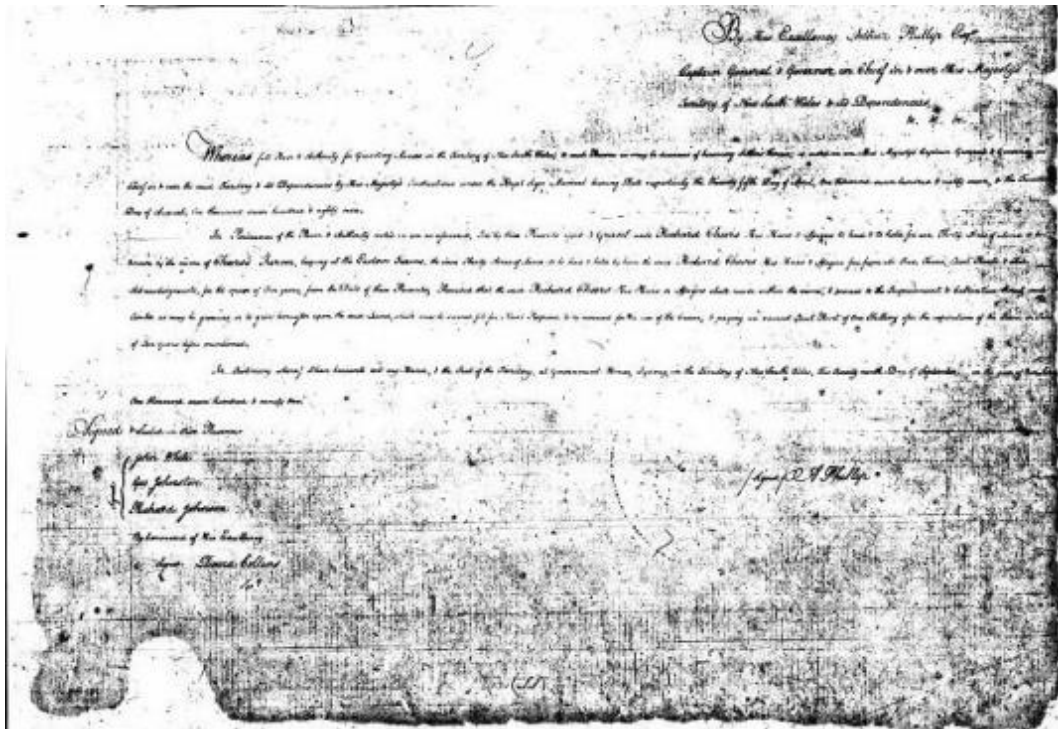 By His Excellency Arthur Phillip Esqr
Captain General & Governor in Chief in & over His Majesty's
Territory of New South Wales & its Dependencies,
&c. &c. &c.
Whereas full Power & Authority for Granting Lands in the Territory of New South Wales, to such Persons as may be desirous of becoming Settlers therein, is vested in me His Majesty's Captain General & Governor in
Chief in & over the said Territory & its Dependencies by His Majesty's Instructions under the Royal Sign Manual bearing Date respectively the Twenty fifth Day of April, One thousand seven hundred & eighty seven, & the Twentieth
Day of August, One thousand seven hundred & eighty nine.
In Pursuance of the Power & Authority vested in me as aforesaid, I do by these Presents give & Grant unto Richard Cheers His Heirs & Assigns to have & to hold for ever, Thirty Acres of Land to be
known by the name of Cheers' Farm, laying at the Eastern Farms, the said Thirty Acres of Land to be had & held by him the said Richard Cheers His Heirs & Assigns free from all Fees, Taxes, Quit Rents & other
Acknowledgments, for the space of Ten years, from the Date of these Presents; Provided that the said Richard Cheers His Heirs or Assigns shall reside within the same, & proceed to the Improvement & Cultivation thereof, such
Timber as may be growing or to grow hereafter upon the said Land, which may be deemed fit for Naval Purposes to be reserved for the use of the Crown, & paying an annual Quit Rent of One Shilling after the expiration of the Term or Time
of Ten years before mentioned.
In Testimony whereof I have hereunto set my Hand, & the Seal of the Territory, at Government House, Sydney, in the Territory of New South Wales, this Twenty ninth Day of September, in the year of our Lord
One thousand seven hundred & ninety two.
Signed & Sealed in Our Presence
John White
Geo Johnston
Richard Johnson
(signed) A Phillip
By Command of His Excellency
signed David Collins